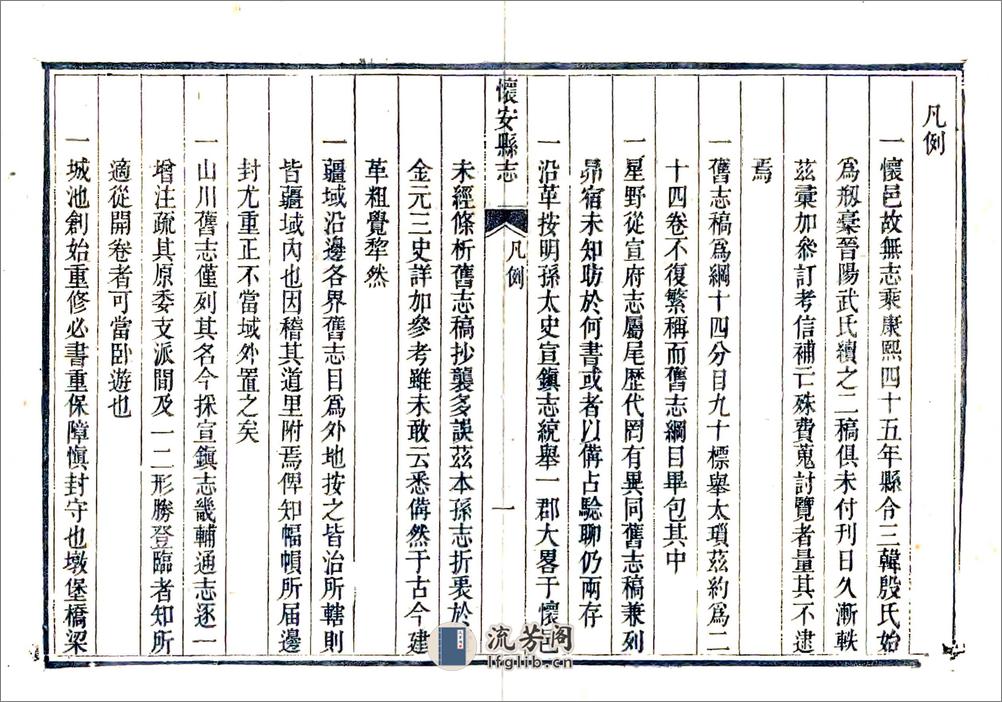 凡例
一懷邑故無志乘康熙四十五年縣令三韓殷氏始
為剏稾晉陽武氏續之二稿俱未付刊日久漸軼
茲彙加參訂考信補亡殊費蒐討覽者量其不逮
焉
一舊志稿為綱十四分目九十標舉太瑣茲約為二
十四卷不復繁稱而舊志綱目畢包其中
一星野從宣府志屬尾歷代罔有異同舊志稿兼列
昴宿未知昉於何書或者以備占驗聊仍兩存
一沿革按明孫太史宣鎮志統舉一郡大畧于懷邑
未經條析舊志稿抄襲多誤茲本孫志折衷於
金元三史詳加參考雖未敢云悉備然于古今建
革粗覺犂然
懷安縣志
凡例
一
一疆域沿邊各界舊志目為外地按之皆治所轄則
皆疆域內也因稽其道里附焉俾知幅幀所届邊
封尤重正不當域外置之矣
一山川舊志僅列其名今採宣鎮志畿輔通志逐一
增注疏其原委支派間及一二形勝登臨者知所
適從開卷者可當卧遊也
一城池創始重修必書重保障慎封守也墩堡橋梁
流芳閣
lfglib.cn